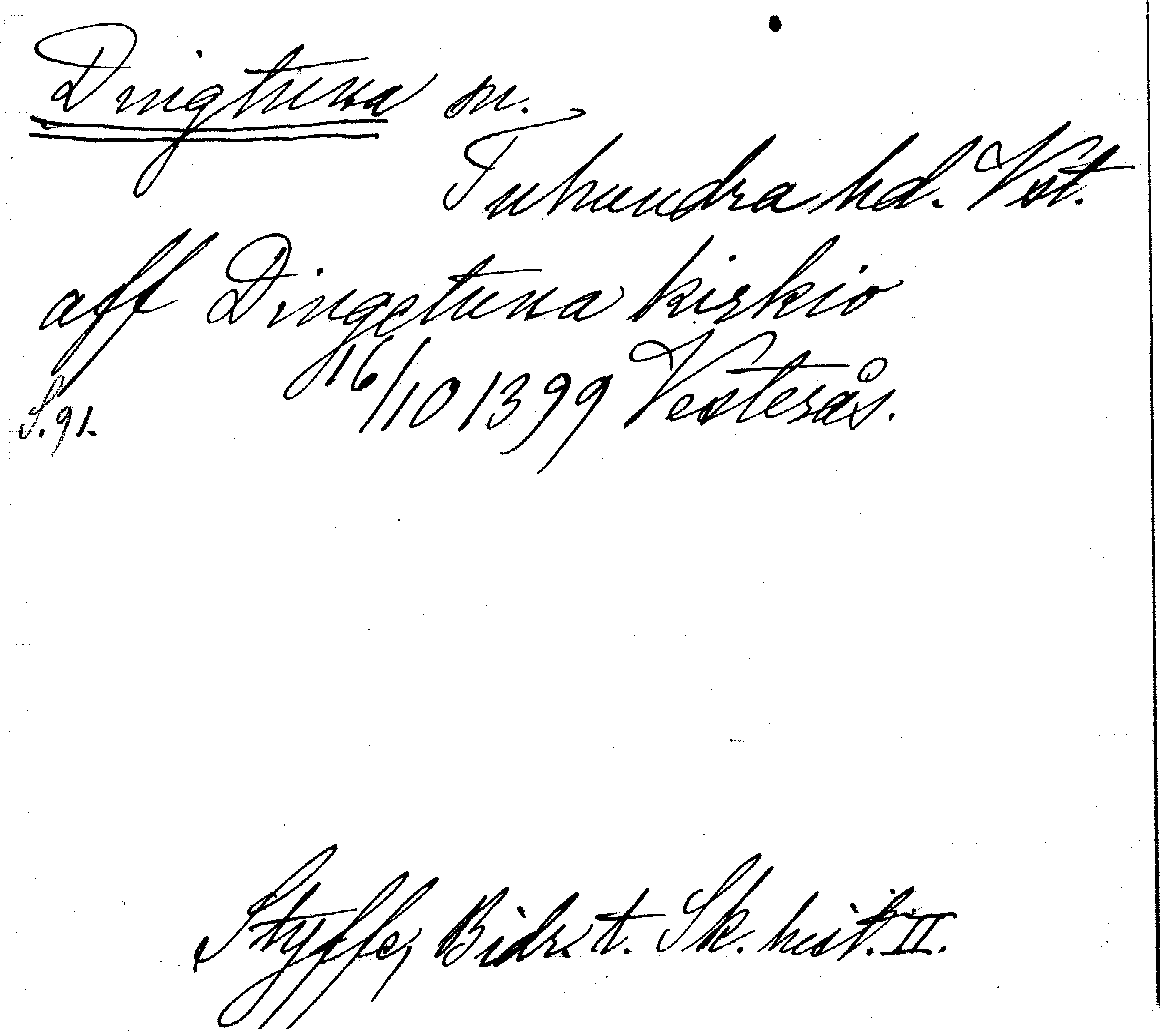 Dingtuna sn.
Tuhundra hd. Vstt.
aff Dingetuna kirkio
16/10 1399 Vesterås.
S. 91.
Styffe, Bidr. t. Sk. hist. II.